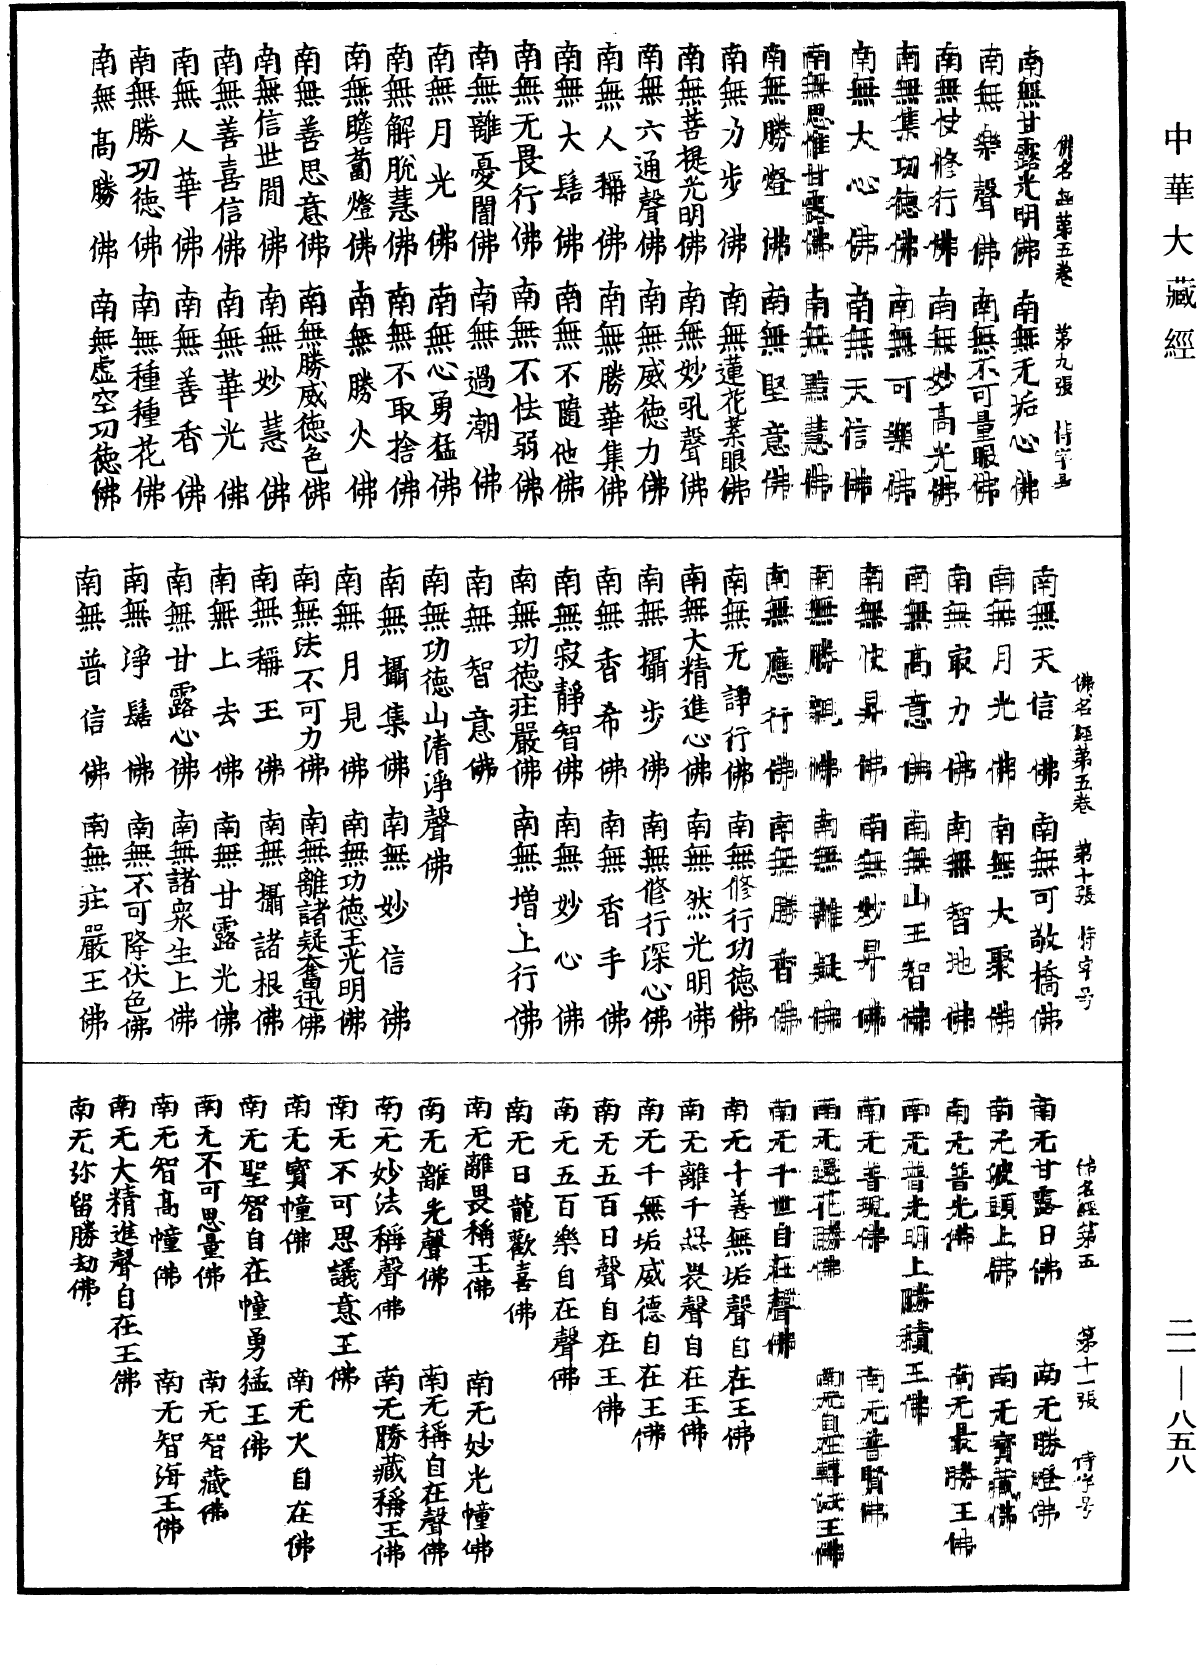 中華大藏經
佛名經第五卷 第九張 恃字号
南無甘露光明佛 南無无垢心佛
南無樂聲佛 南無不可量眼佛
南無快修行佛 南無妙高光佛
南無集功德佛 南無可樂佛
南無大心佛 南無天信佛
南無思惟甘露佛 南無黠慧佛
南無勝燈佛 南無堅意佛
南無力步佛 南無蓮花葉眼佛
南無菩提光明佛 南無妙吼聲佛
南無六通聲佛 南無威德力佛
南無人稱佛 南無勝華集佛
南無大髻佛 南無不隨他佛
南無无畏行佛 南無不怯弱佛
南無離憂闇佛 南無過潮佛
南無月光佛 南無心勇猛佛
南無解脫慧佛 南無不取捨佛
南無瞻蔔燈佛 南無勝火佛
南無善思意佛 南無勝威德色佛
南無信世間佛 南無妙慧佛
南無善喜信佛 南無華光佛
南無人華佛 南無善香佛
南無勝功德佛 南無種種花佛
南無高勝佛 南無虛空功德佛
佛名經第五卷 第十張 恃字号
南無天信佛 南無可敬橋佛
南無月光佛 南無大聚佛
南無㝡力佛 南無智地佛
南無高意佛 南無山王智佛
南無快昇佛 南無妙昇佛
南無勝親佛 南無離疑佛
南無應行佛 南無勝香佛
南無无諍行佛 南無修行功德佛
南無大精進心佛 南無然光明佛
南無攝步佛 南無修行深心佛
南無香希佛 南無香手佛
南無寂靜智佛 南無妙心佛
南無功德莊嚴佛 南無增上行佛
南無智意佛
南無功德山清淨聲佛
南無攝集佛 南無妙信佛
南無月見佛 南無功德王光明佛
南無法不可力佛 南無離諸疑奮迅佛
南無稱王佛 南無攝諸根佛
南無上去佛 南無甘露光佛
南無甘露心佛 南無諸眾生上佛
南無淨髻佛 南無不可降伏色佛
南無普信佛 南無莊嚴王佛
佛名經第五 第十一張 恃字号
南无甘露日佛 南无勝燈佛
南无波頭上佛 南无寶藏佛
南无普光佛 南无最勝王佛
南无普光明上勝積王佛
南无普現佛 南无普賢佛
南无選花勝佛 南无自在轉法王佛
南无千世自在聲佛
南无十善無垢聲自在王佛
南无離千無畏聲自在王佛
南无千無垢威德自在王佛
南无五百日聲自在王佛
南无五百樂自在聲佛
南无日龍歡喜佛
南无離畏稱王佛 南无妙光幢佛
南无離光聲佛 南无稱自在聲佛
南无妙法稱聲佛 南无勝藏稱王佛
南无不可思議意王佛
南无寶幢佛 南无大自在佛
南无聖智自在幢勇猛王佛
南无不可思量佛 南无智藏佛
南无智高幢佛 南无智海王佛
南无大精進聲自在王佛
南无弥留勝劫佛
二一—八五八